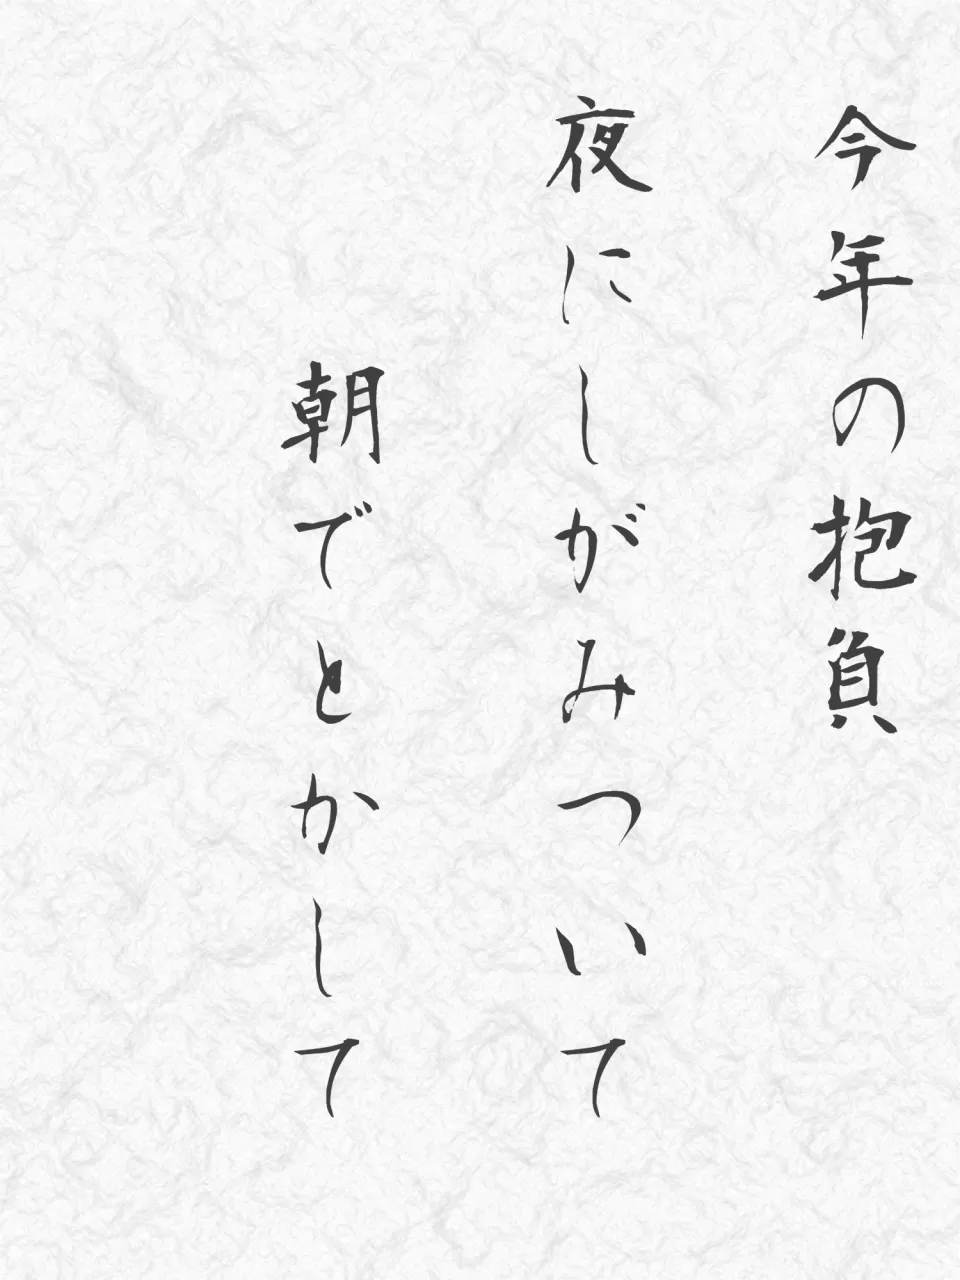 今年の抱負
夜にしがみついて
朝でとかして